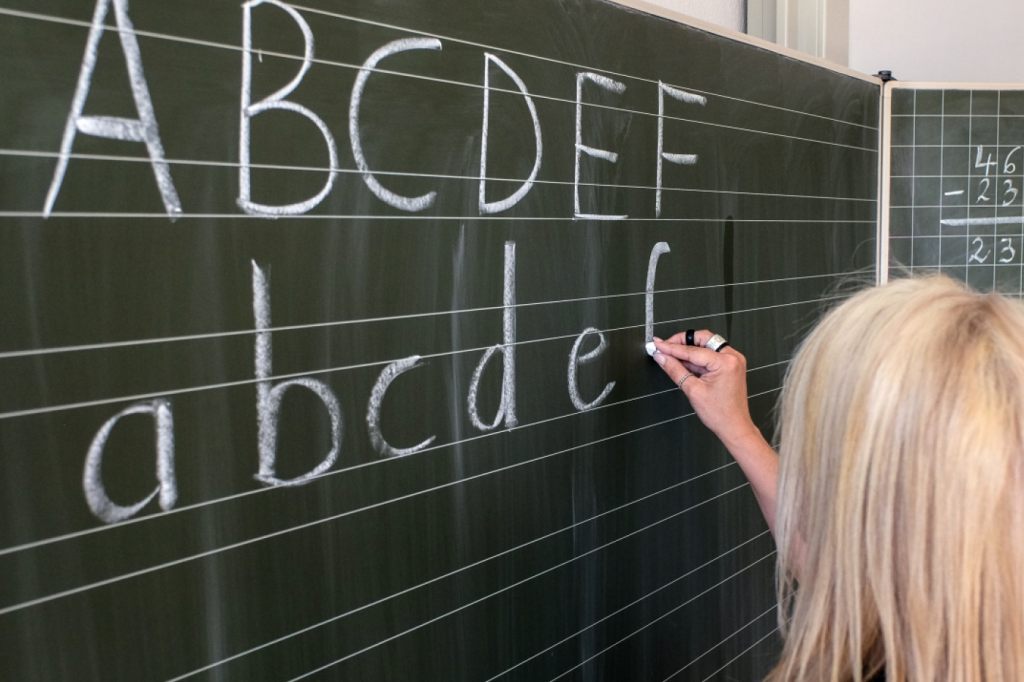 A B C D E F
a b c d e
46
- 23
23